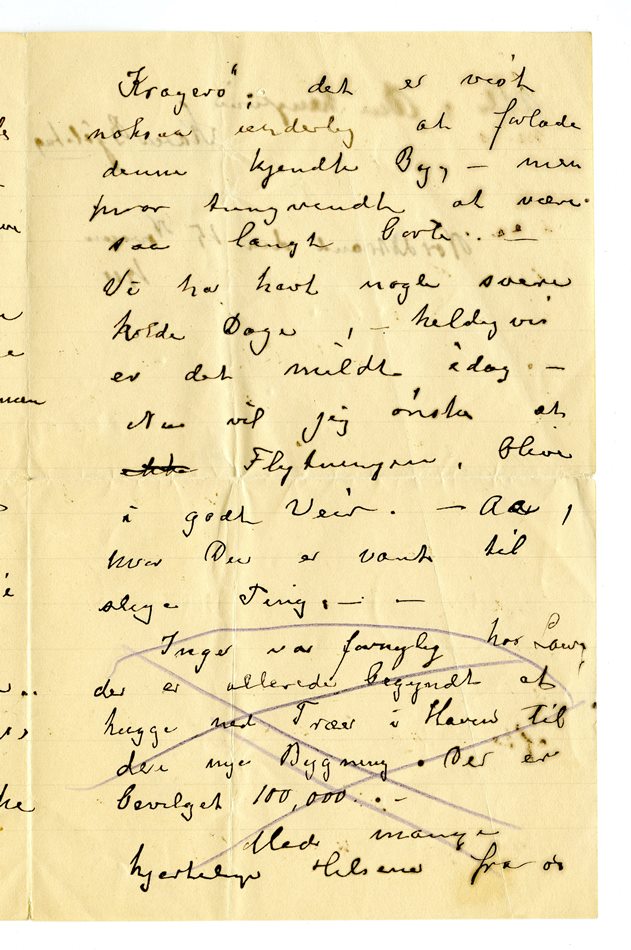 Kragerø"; det er vist
noksaa underlig at forlade
denne kjendte By, — men
hvor tungvendt at være
saa langt borte. —
Vi ha havt nogle svære
kolde Dage, — heldigvis
er det mildt idag —
Nu vil jeg ønske at
Flytningen, blive
i godt Veir. — Aa,
hvor Du er vant til
slige Ting. — —
Inger var fornylig hos Lowz,
der er allerede begyndt at
hugge ned Trær i Haven til
den nye Bygning. Der er
bevilget 100,000. —
Med mange
hjertelige Hilsener fra os